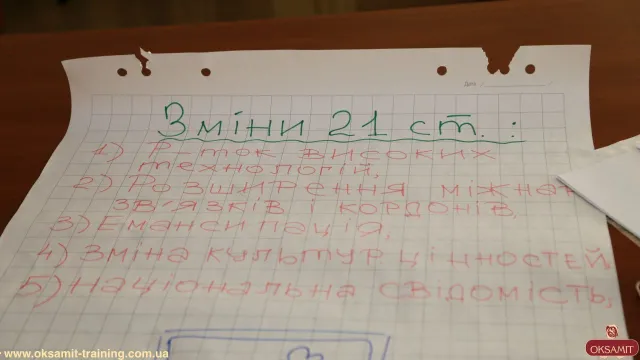 Зміни 21 ст. :
1) Р-ток високих
технологій,
2) Розширення міжнар
зв'язків і кордонів,
3) Емансипація,
4) Зміна культур цінностей,
5) Національна свідомість,
www.oksamit-training.com.ua
OKSAMIT